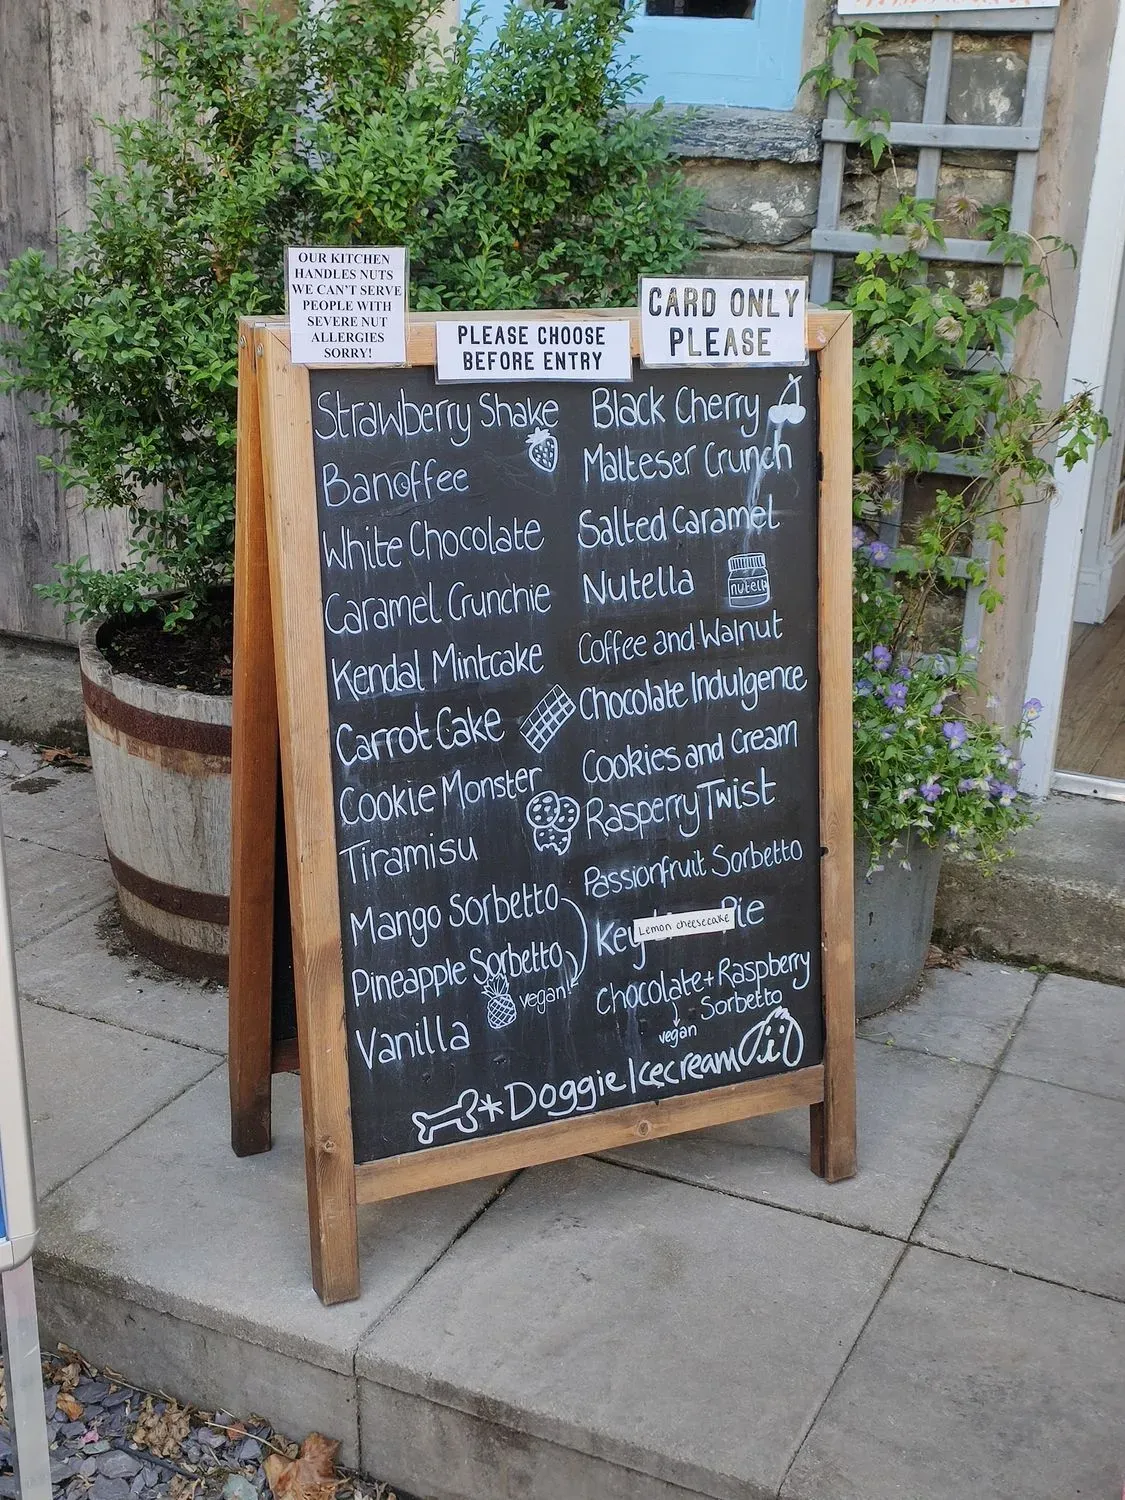 OUR KITCHEN
HANDLES NUTS
WE CAN'T SERVE
PEOPLE WITH
SEVERE NUT
ALLERGIES
SORRY!
PLEASE CHOOSE
BEFORE ENTRY
CARD ONLY
PLEASE
Strawberry Shake
Banoffee
White Chocolate
Caramel Crunchie
Kendal Mintcake
Carrot Cake
Cookie Monster
Tiramisu
Mango Sorbetto
Pineapple Sorbetto
vegan!
Vanilla
Black Cherry
Malteser Crunch
Salted Caramel
Nutella
Coffee and Walnut
Chocolate Indulgence
Cookies and Cream
Rasperry Twist
Passionfruit Sorbetto
Key Pie
Lemon cheesecake
Chocolate + Raspberry
Sorbetto
vegan
*Doggie Icecream